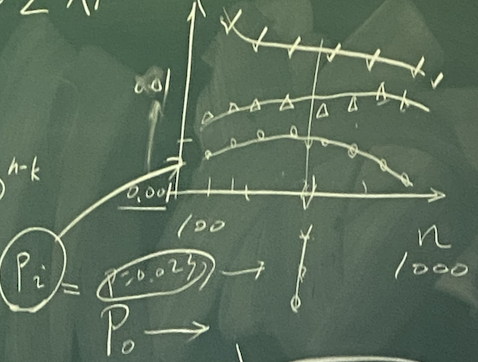 0.01
n-k
0.001
100
n
1000
P_i = P=0.025
P_0